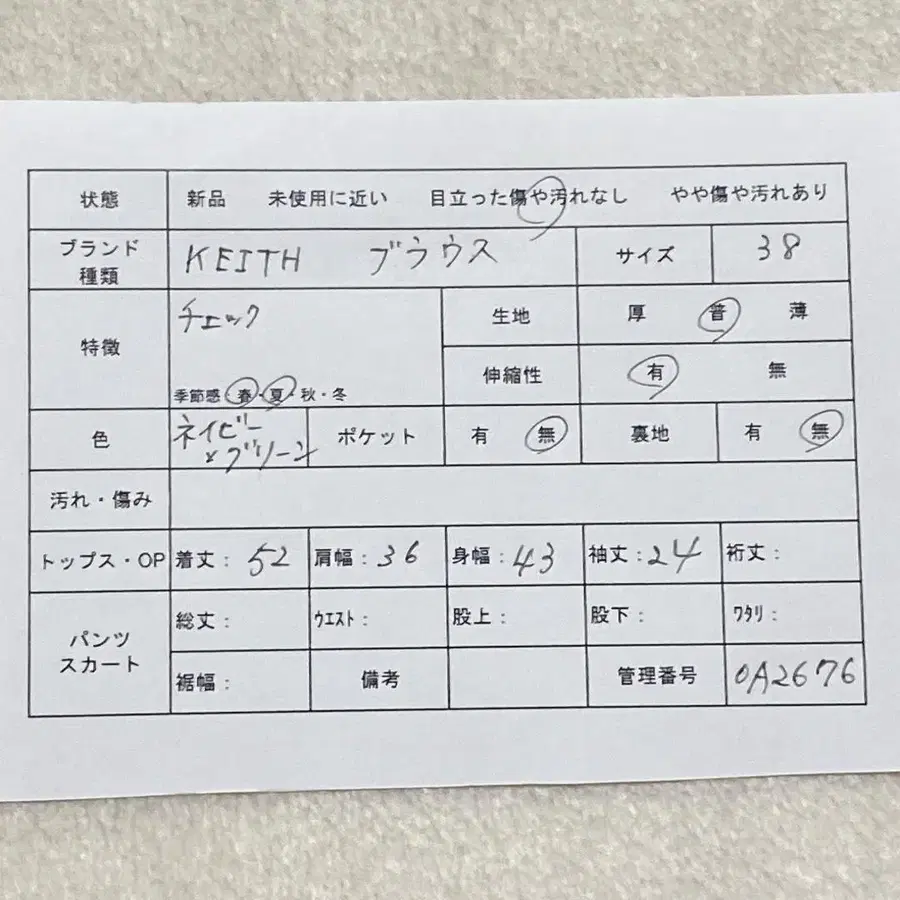 状態 新品 未使用に近い 目立った傷や汚れなし やや傷や汚れあり
ブランド種類 KEITH ブラウス サイズ 38
特徴 チェック
季節感 春・夏・秋・冬
生地 厚 普 薄
伸縮性 有 無
色 ネイビー×グリーン ポケット 有 無 裏地 有 無
汚れ・傷み
トップス・OP 着丈: 52 肩幅: 36 身幅: 43 袖丈: 24 裄丈:
パンツ
スカート
総丈: ウエスト: 股上: 股下: ワタリ:
裾幅: 備考 管理番号 0A2676